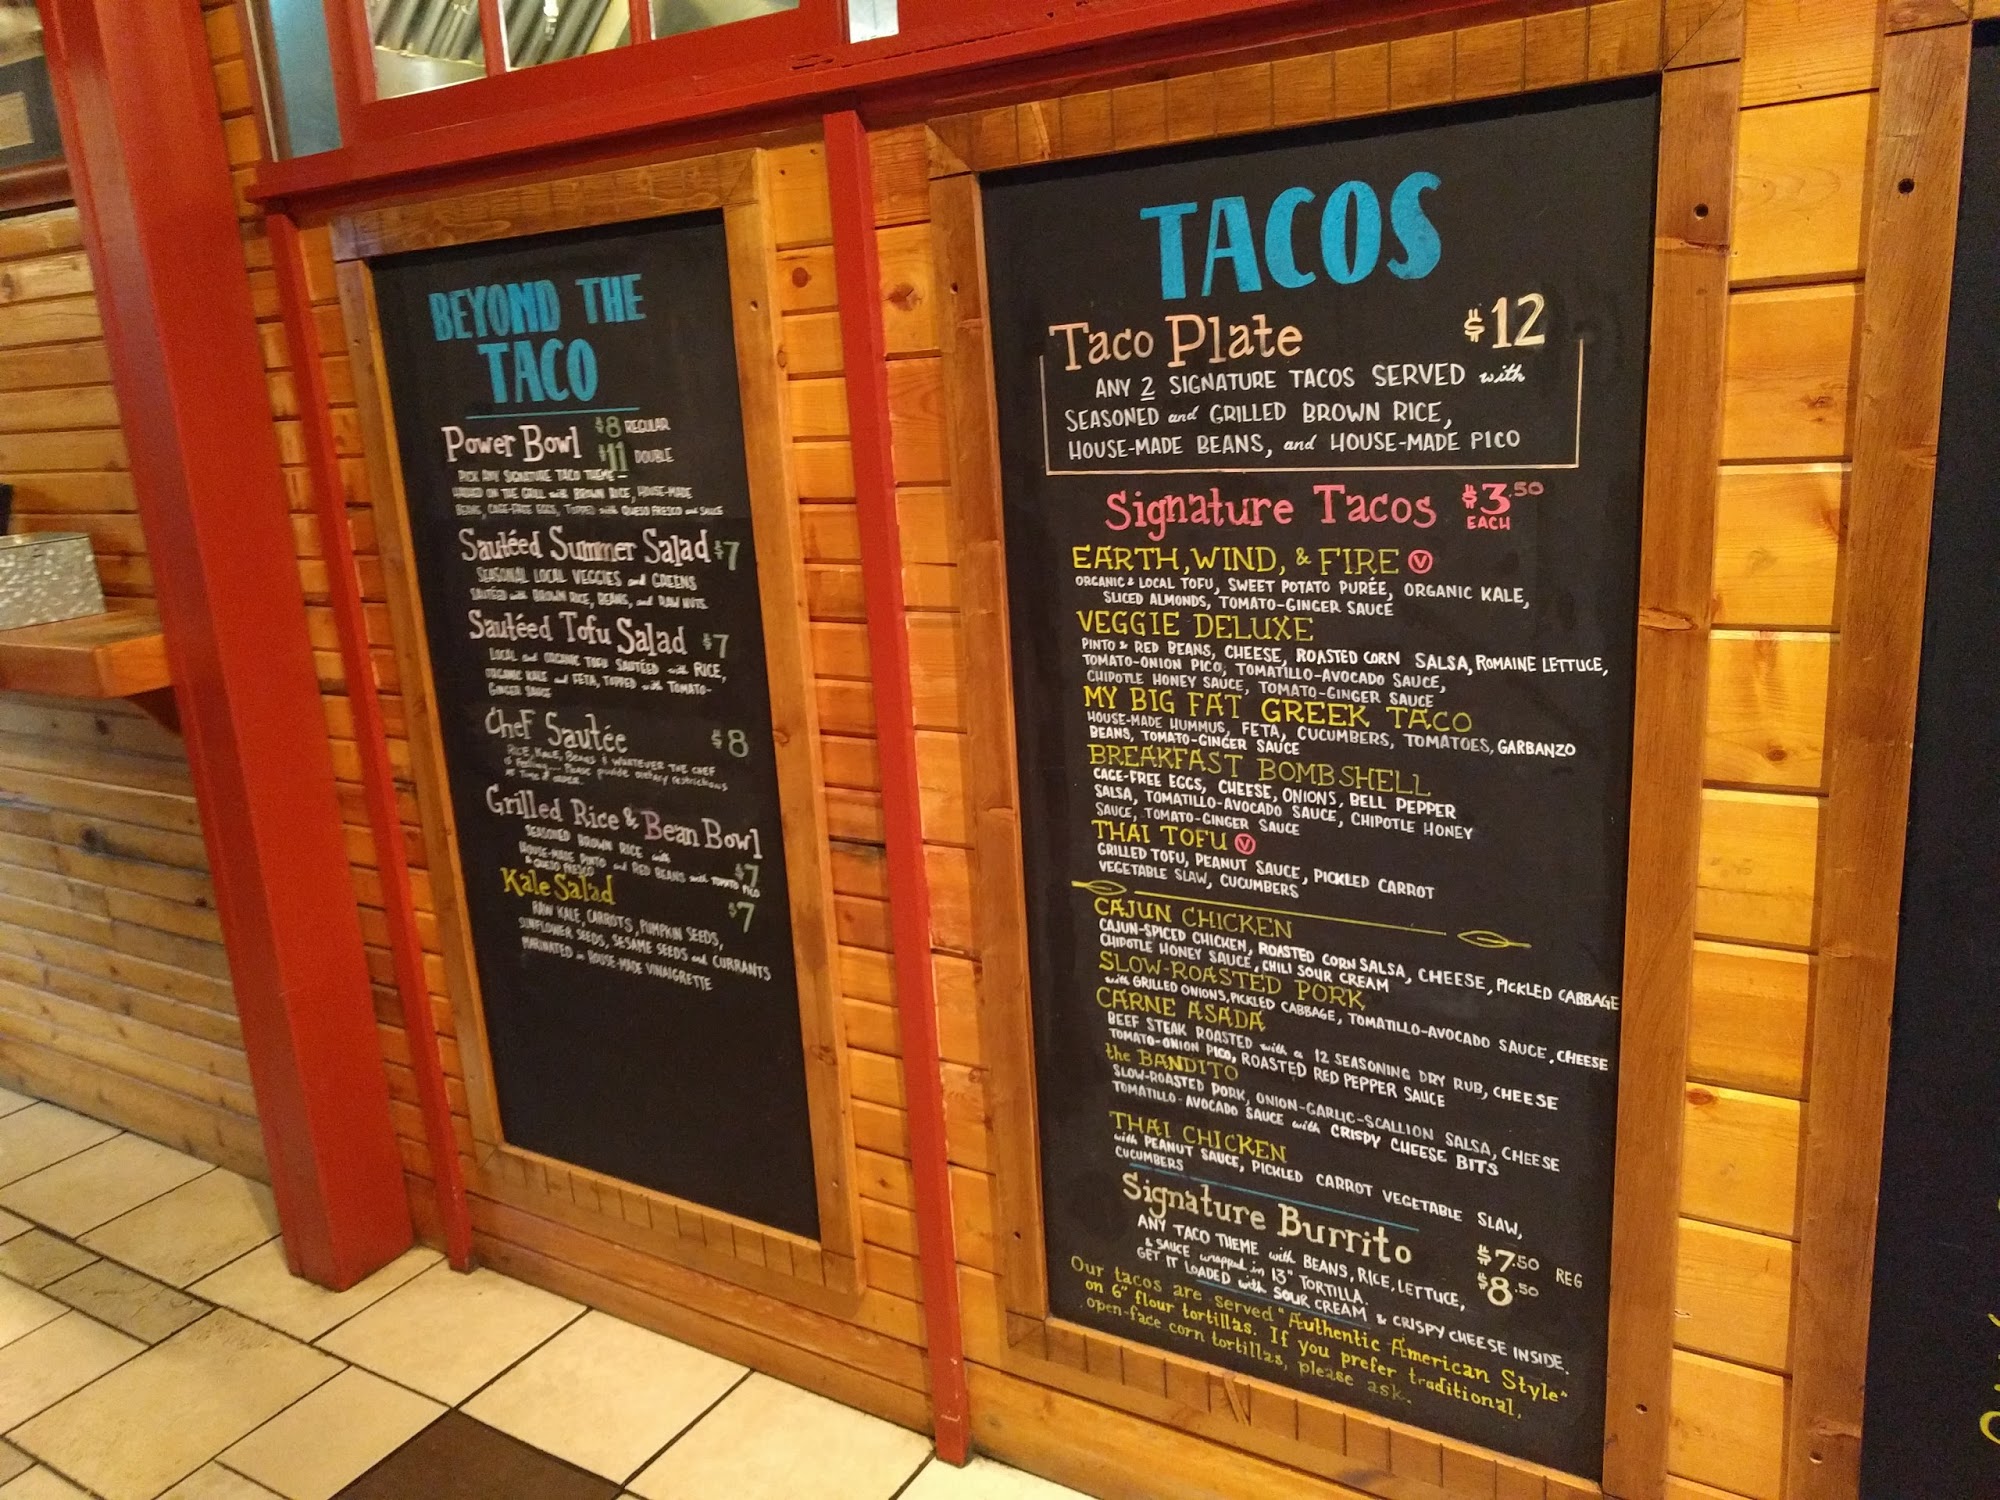 BEYOND THE
TACO
Power Bowl $8 REGULAR
$11 DOUBLE
PICK ANY SIGNATURE TACO THEME –
HASHED ON THE GRILL with BROWN RICE, HOUSE-MADE
BEANS, CAGE-FREE EGGS, TOPPED with QUESO FRESCO and SAUCE
Sautéed Summer Salad $7
SEASONAL LOCAL VEGGIES and GREENS
SAUTÉED with BROWN RICE, BEANS, and RAW NUTS.
Sautéed Tofu Salad $7
LOCAL and ORGANIC TOFU SAUTÉED with RICE,
ORGANIC KALE and FETA, TOPPED with TOMATO-
GINGER SAUCE
Chef Sautée $8
RICE, KALE, BEANS & WHATEVER THE CHEF
is feeling.... Please provide dietary restrictions
at time of order.
Grilled Rice & Bean Bowl
SEASONED BROWN RICE with $7
HOUSE-MADE PINTO and RED BEANS with TOMATO PICO
& QUESO FRESCO
Kale Salad $7
RAW KALE, CARROTS, PUMPKIN SEEDS,
SUNFLOWER SEEDS, SESAME SEEDS and CURRANTS
MARINATED in HOUSE-MADE VINAIGRETTE
TACOS
Taco Plate $12
ANY 2 SIGNATURE TACOS SERVED with
SEASONED and GRILLED BROWN RICE,
HOUSE-MADE BEANS, and HOUSE-MADE PICO
Signature Tacos $3.50
EACH
EARTH, WIND, & FIRE V
ORGANIC & LOCAL TOFU, SWEET POTATO PURÉE, ORGANIC KALE,
SLICED ALMONDS, TOMATO-GINGER SAUCE
VEGGIE DELUXE
PINTO & RED BEANS, CHEESE, ROASTED CORN SALSA, ROMAINE LETTUCE,
TOMATO-ONION PICO, TOMATILLO-AVOCADO SAUCE,
CHIPOTLE HONEY SAUCE, TOMATO-GINGER SAUCE
MY BIG FAT GREEK TACO
HOUSE-MADE HUMMUS, FETA, CUCUMBERS, TOMATOES, GARBANZO
BEANS, TOMATO-GINGER SAUCE
BREAKFAST BOMBSHELL
CAGE-FREE EGGS, CHEESE, ONIONS, BELL PEPPER
SALSA, TOMATILLO-AVOCADO SAUCE, CHIPOTLE HONEY
SAUCE, TOMATO-GINGER SAUCE
THAI TOFU V
GRILLED TOFU, PEANUT SAUCE, PICKLED CARROT
VEGETABLE SLAW, CUCUMBERS
CAJUN CHICKEN
CAJUN-SPICED CHICKEN, ROASTED CORN SALSA, CHEESE, PICKLED CABBAGE
CHIPOTLE HONEY SAUCE, CHILI SOUR CREAM
SLOW-ROASTED PORK
with GRILLED ONIONS, PICKLED CABBAGE, TOMATILLO-AVOCADO SAUCE, CHEESE
CARNE ASADA
BEEF STEAK ROASTED with a 12 SEASONING DRY RUB, CHEESE
TOMATO-ONION PICO, ROASTED RED PEPPER SAUCE
the BANDITO
SLOW-ROASTED PORK, ONION-GARLIC-SCALLION SALSA, CHEESE
TOMATILLO-AVOCADO SAUCE with CRISPY CHEESE BITS
THAI CHICKEN
with PEANUT SAUCE, PICKLED CARROT VEGETABLE SLAW,
CUCUMBERS
Signature Burrito $7.50 REG
ANY TACO THEME with BEANS, RICE, LETTUCE, $8.50
& SAUCE wrapped in 13" TORTILLA.
GET IT LOADED with SOUR CREAM & CRISPY CHEESE INSIDE.
Our tacos are served "Authentic American Style"
on 6" flour tortillas. If you prefer traditional,
open-face corn tortillas, please ask.